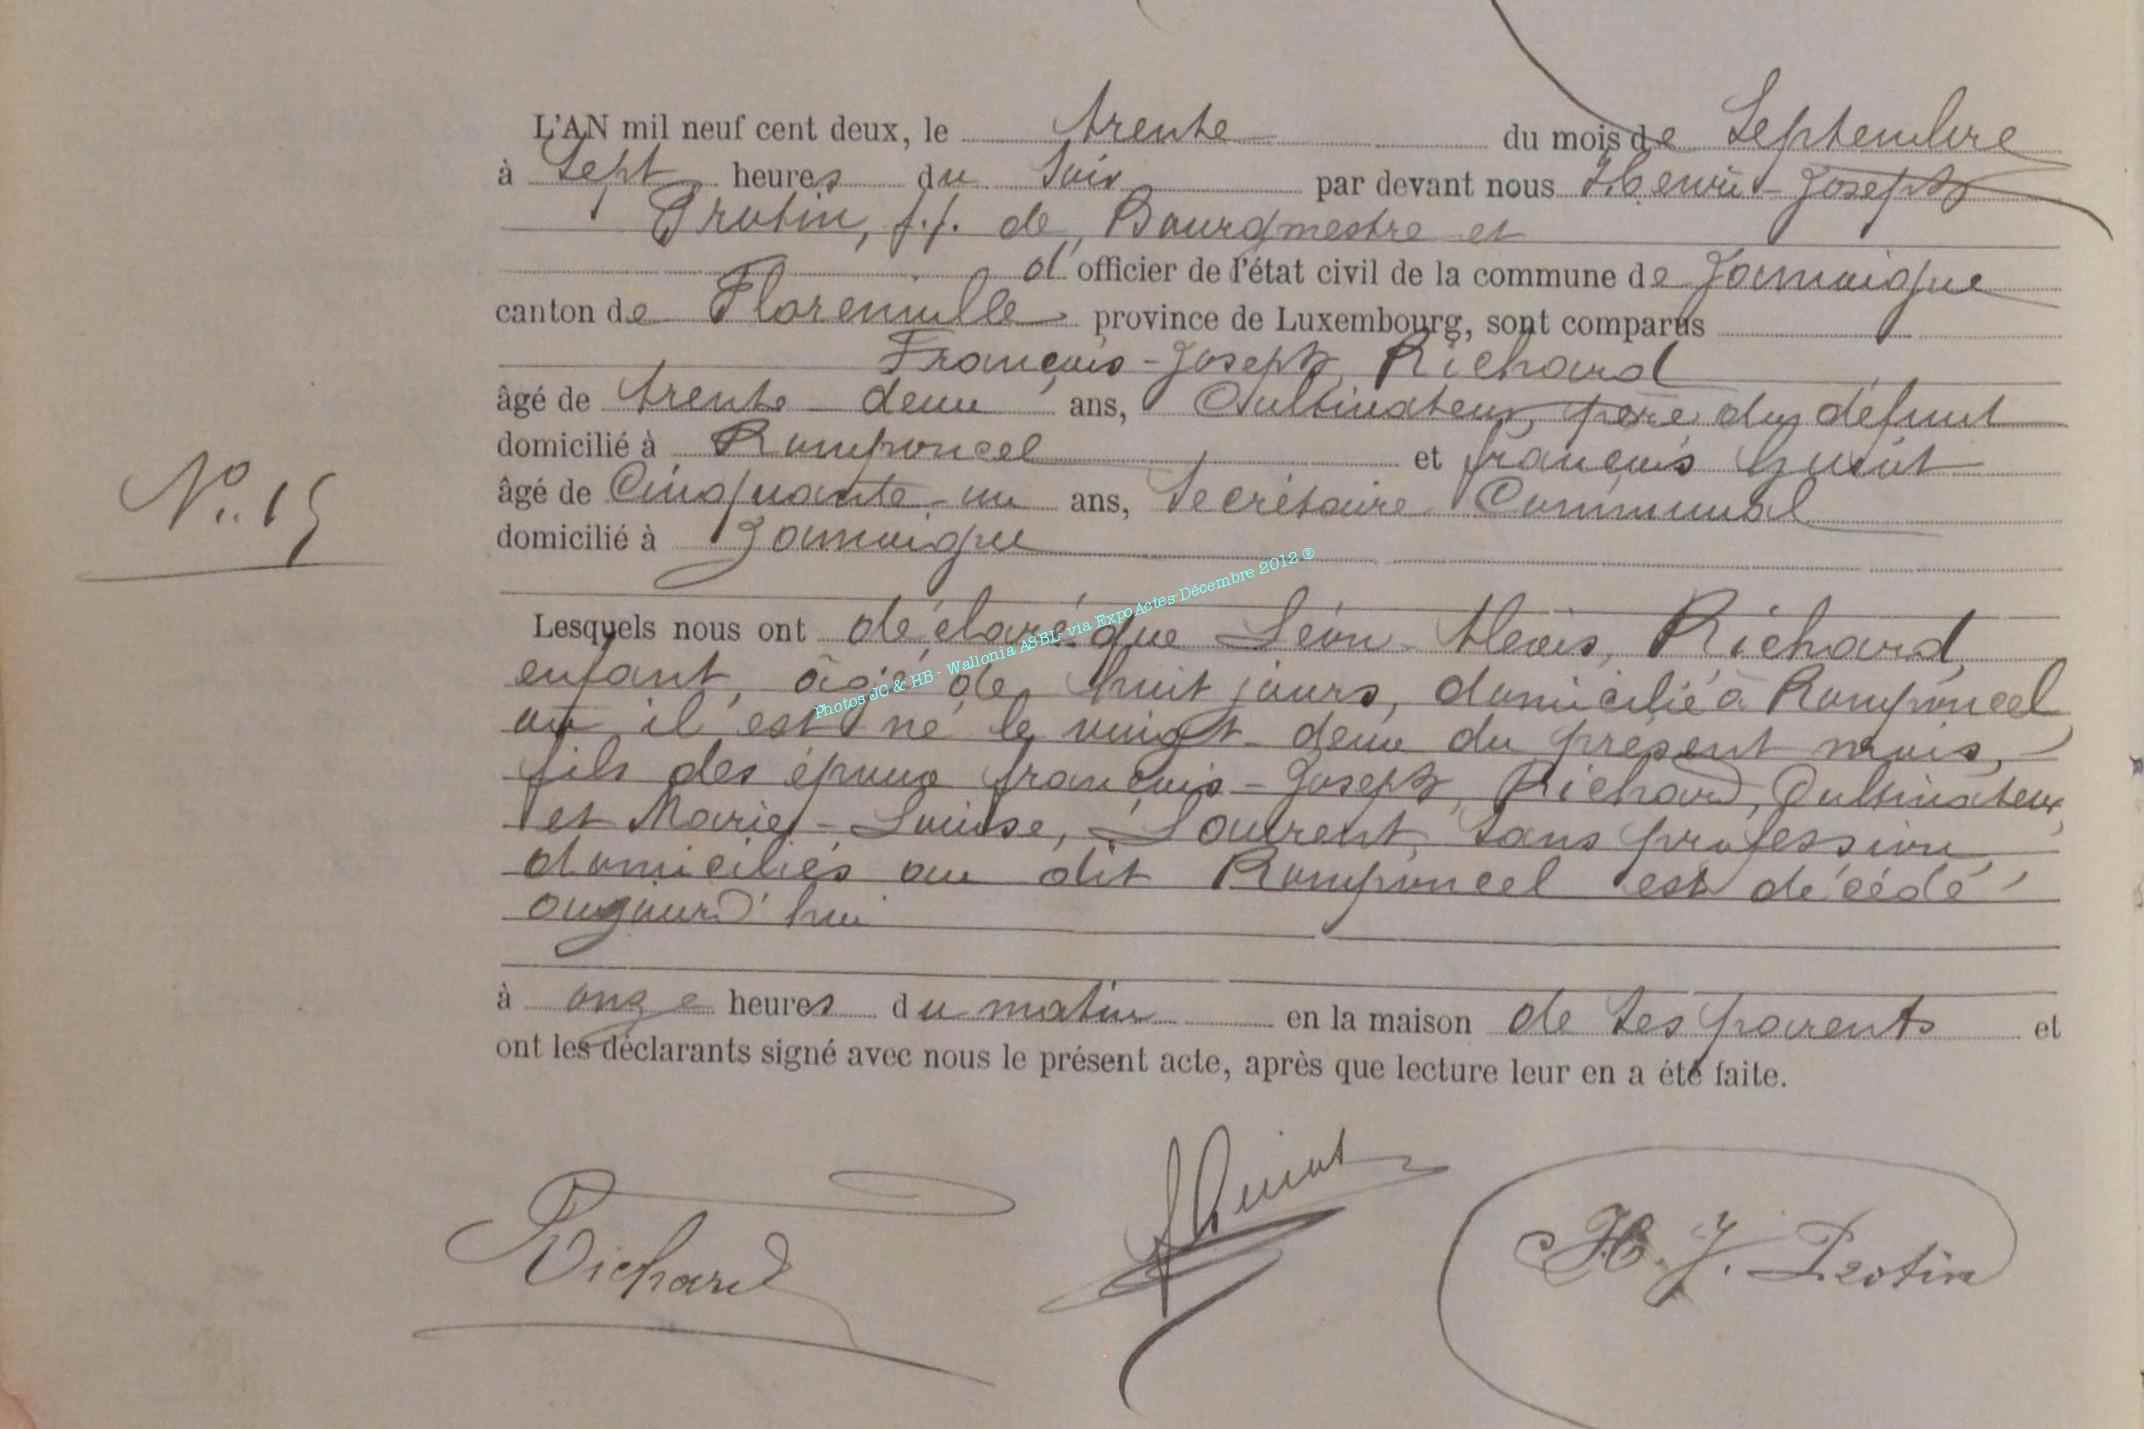 L'AN mil neuf cent deux, le trente du mois de Septembre
à Sept heures du Soir par devant nous Henri-Joseph
Protin, f.f. de Bourgmestre et
d' officier de l'état civil de la commune de Jamoigne
canton de Florenville province de Luxembourg, sont comparus
François-Joseph, Richard
âgé de trente deux ans, Cultivateur, père du défunt
domicilié à Romponcel et françois Guiot
N° 15
âgé de Cinquante-un ans, Secrétaire Communal
domicilié à Jamoigne
Lesquels nous ont déclaré que Léon Alexis, Richard,
enfant, âgé de huit jours, domicilié à Romponcel
où il est né le vingt-deux du présent mois,
fils des époux françois-Joseph, Richard, Cultivateur,
et Marie-Louise, Laurent, Sans profession,
domiciliés au dit Romponcel est décédé
aujourd'hui
à onze heures du matin en la maison de Ses parents et
ont les déclarants signé avec nous le présent acte, après que lecture leur en a été faite.
Richard
H. J. Protin
Photos JC & HB - Wallonia ASBL via ExpoActes-Décembre 2012 ®